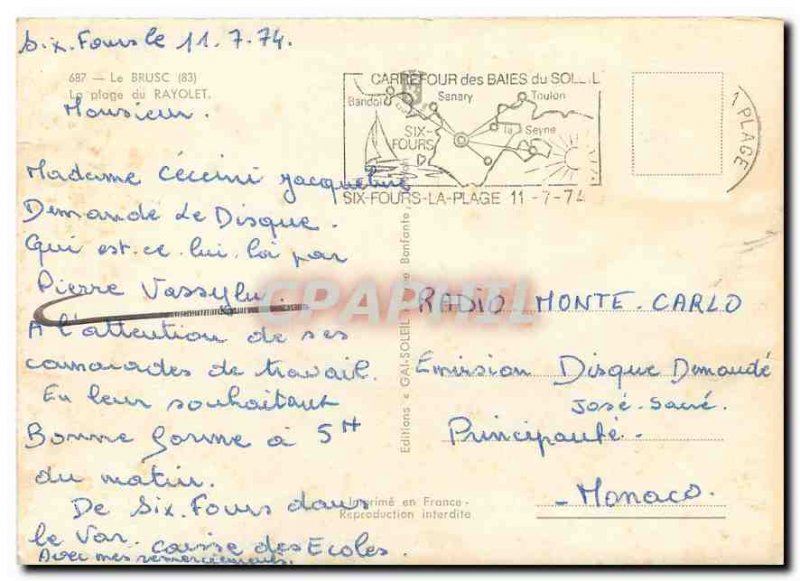 Six. Fours le 11.7.74.
687 — Le BRUSC (83)
La plage du RAYOLET.
Monsieur.
Madame Céccini Jacqueline
Demande Le Disque.
Qui est-ce lui là par
Pierre Vassylu
A l'attention de ses
camarades de travail.
En leur souhaitant
Bonne forme à 5H
du matin.
De Six. Fours dans
le Var. caisse des Ecoles.
Avec mes remerciements.
CARREFOUR des BAIES du SOLEIL
Bandol
Sanary
Toulon
SIX-
FOURS
la Seyne
SIX-FOURS-LA-PLAGE 11 -7-74
PLAGE
Editions « GAI-SOLEIL » Bonfante
CPAPHIL
RADIO MONTE-CARLO
Émission Disque Demandé
José. Sacré.
Principauté.
- Monaco.
Imprimé en France -
Reproduction interdite